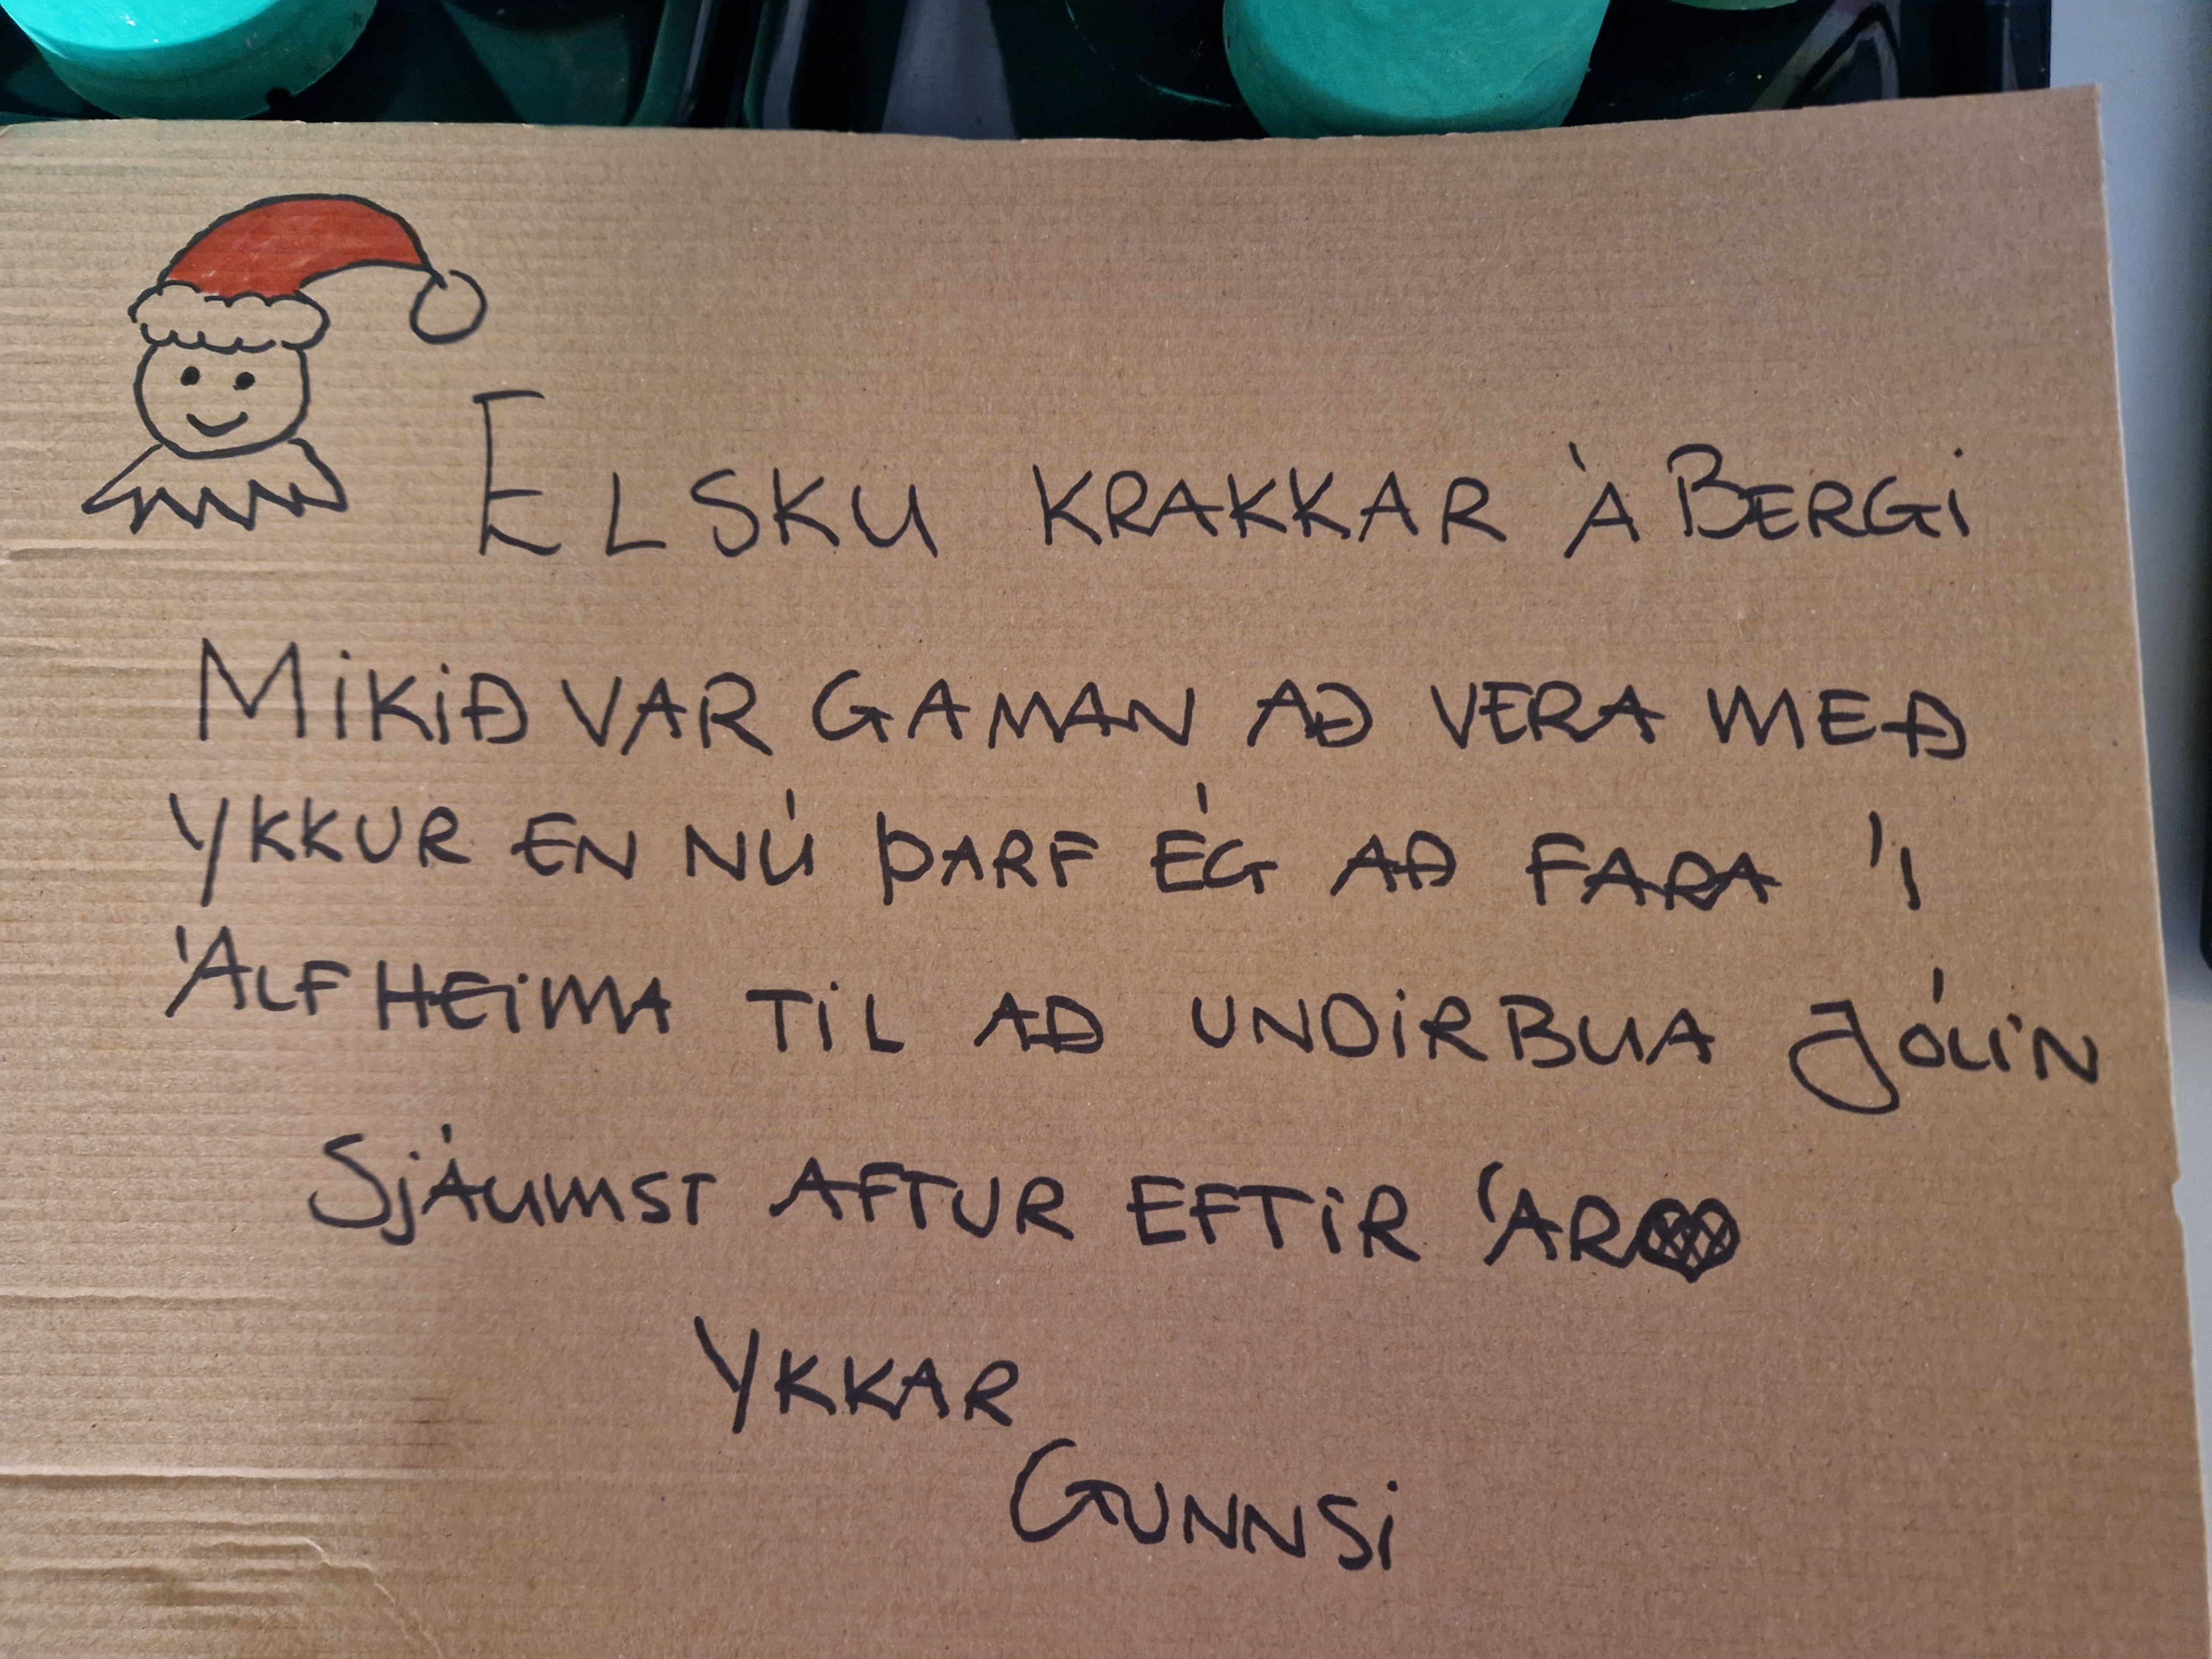 ELSKU KRAKKAR Á BERGI
MIKIÐ VAR GAMAN AÐ VERA MEÐ
YKKUR EN NÚ ÞARF ÉG AÐ FARA Í
ÁLFHEIMA TIL AÐ UNDIRBUA JÓLIN
SJÁUMST AFTUR EFTIR ÁR
YKKAR
GUNNSI